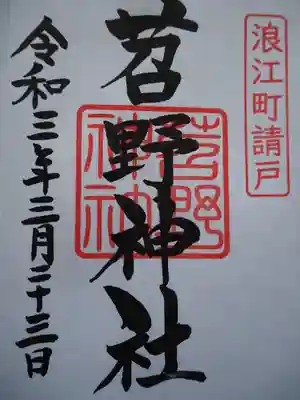 浪江町請戸
苕野神社
苕野神社
令和三年三月二十三日